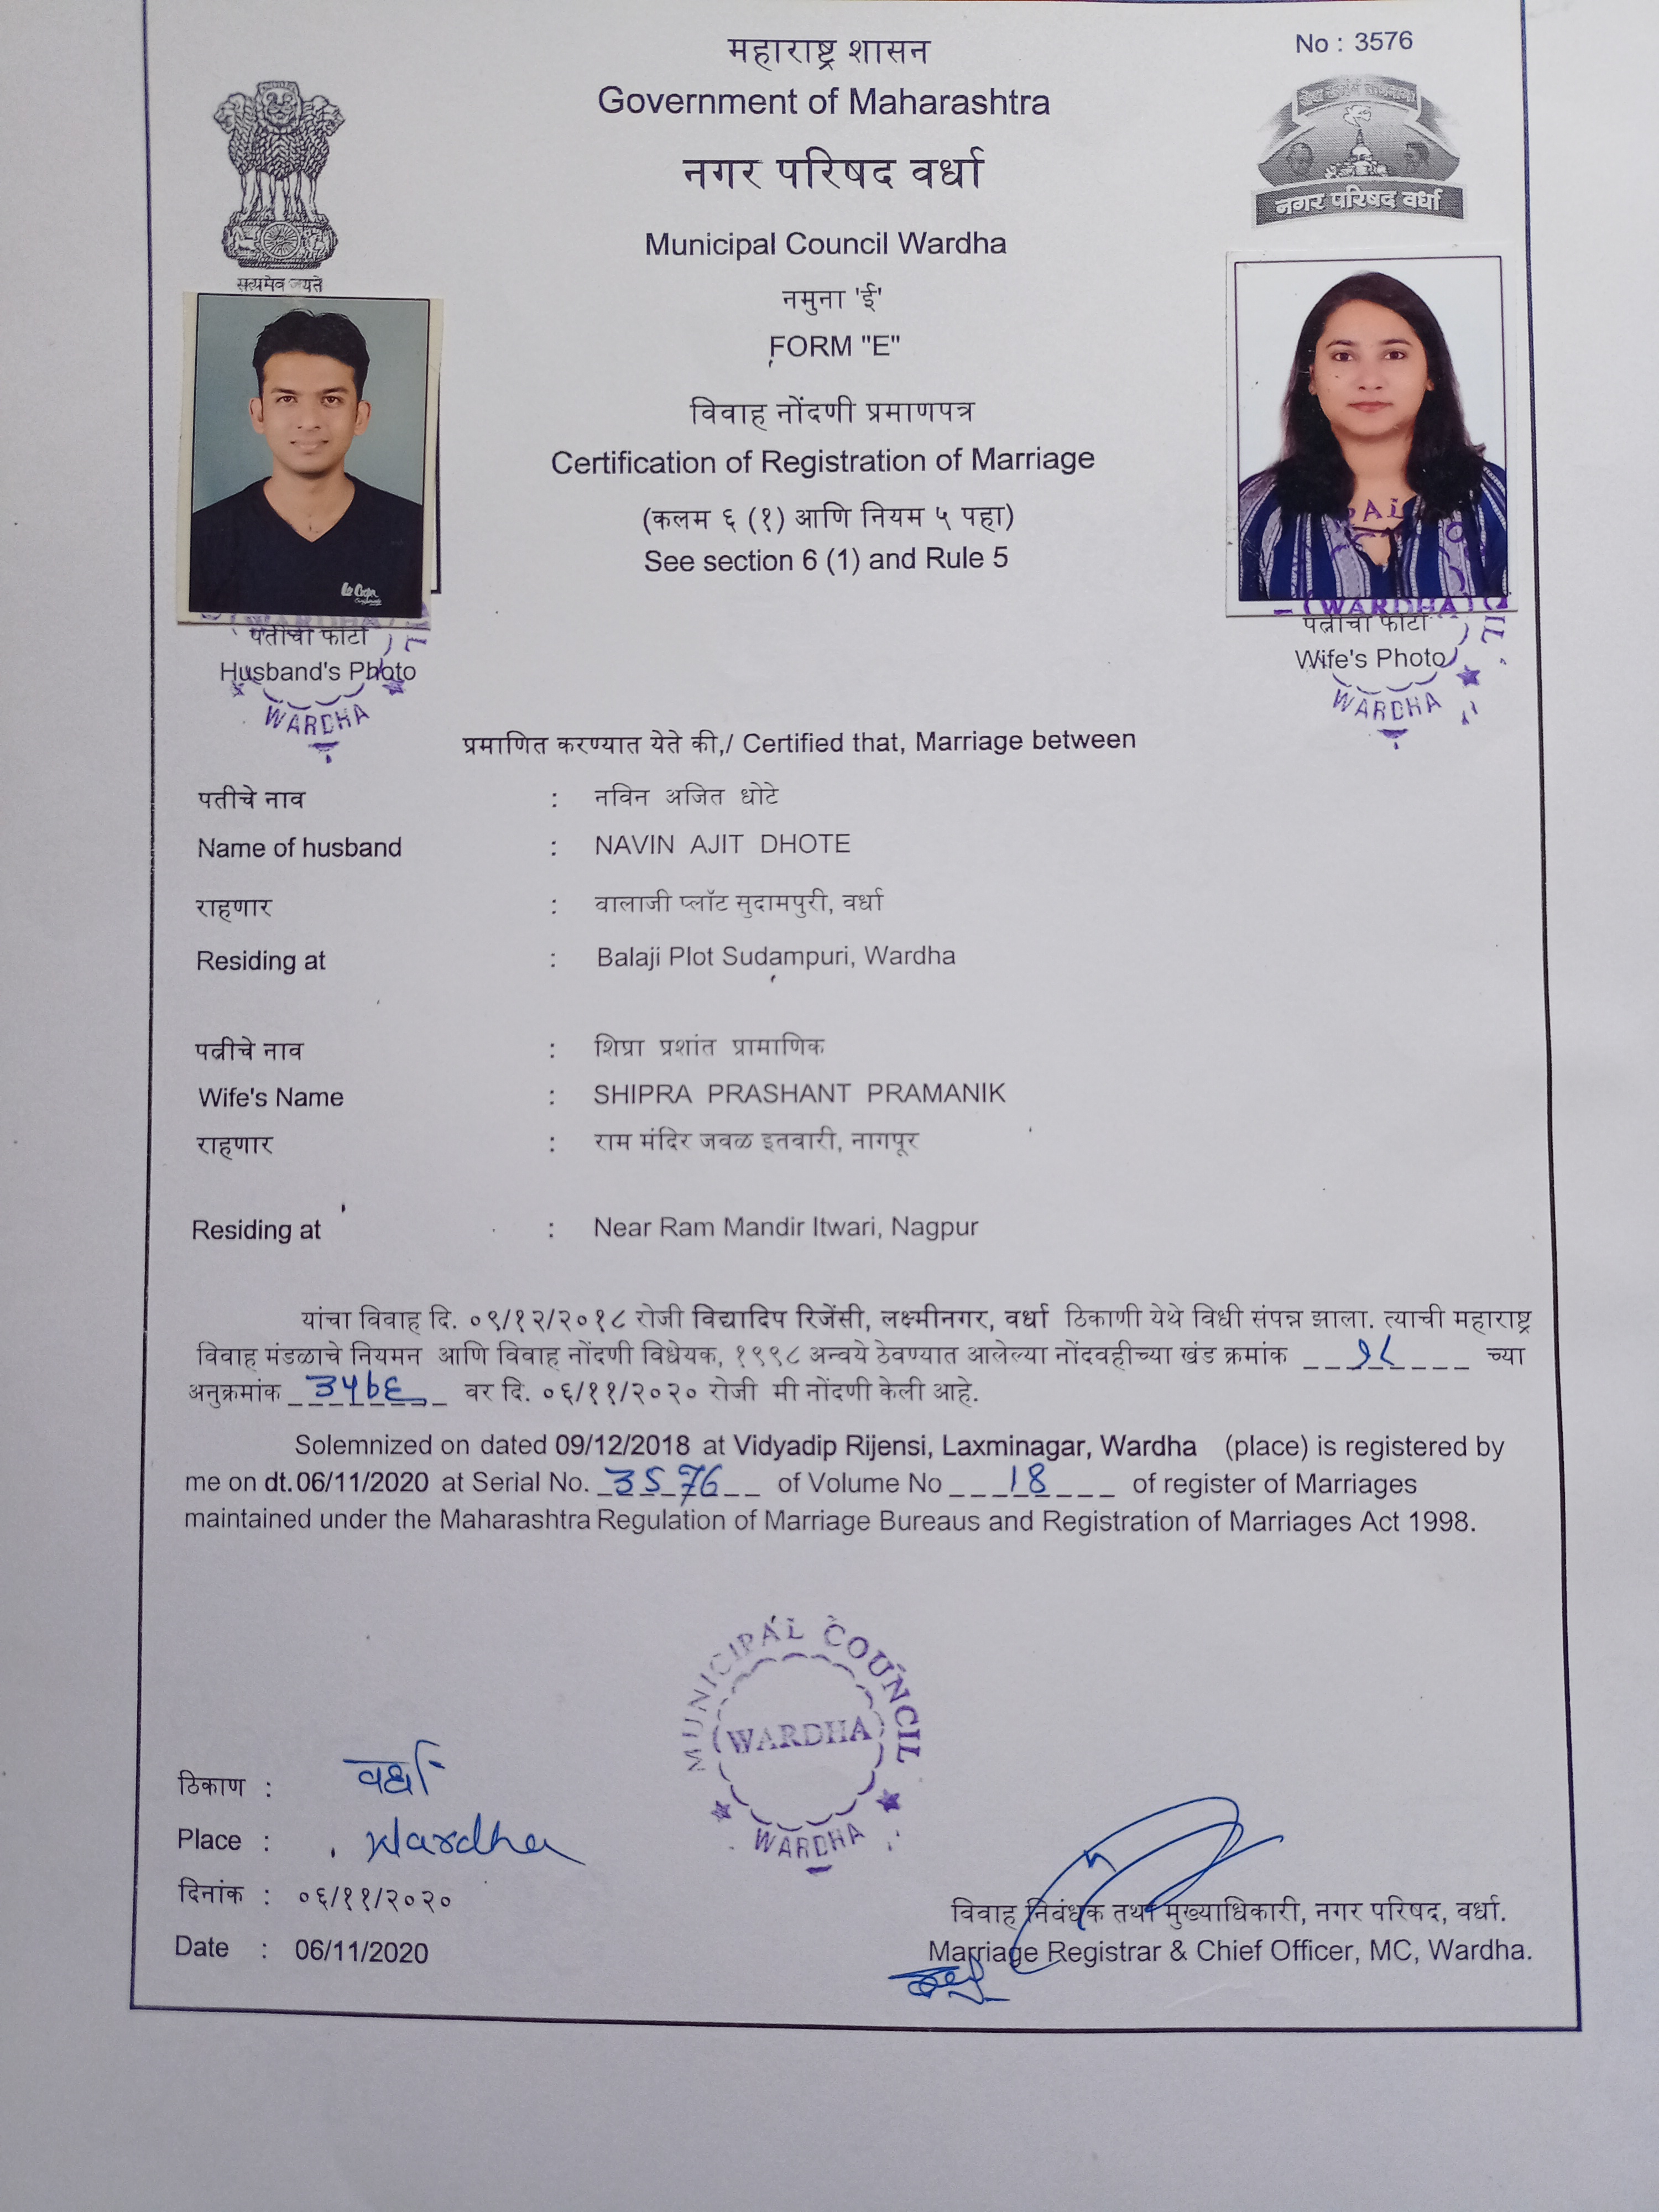 महाराष्ट्र शासन
No : 3576
Government of Maharashtra
नगर परिषद वर्धा
नगर परिषद वर्धा
Municipal Council Wardha
सत्यमेव जयते
नमुना 'ई'
FORM "E"
विवाह नोंदणी प्रमाणपत्र
Certification of Registration of Marriage
(कलम ६ (१) आणि नियम ५ पहा)
See section 6 (1) and Rule 5
Lee Cooper
(WARDHA)
पतीचा फोटो
Husband's Photo
WARDHA
(WARDHA)
पत्नीचा फोटो
Wife's Photo
WARDHA
प्रमाणित करण्यात येते की,/ Certified that, Marriage between
पतीचे नाव : नविन अजित धोटे
Name of husband : NAVIN AJIT DHOTE
राहणार : बालाजी प्लॉट सुदामपुरी, वर्धा
Residing at : Balaji Plot Sudampuri, Wardha
पत्नीचे नाव : शिप्रा प्रशांत प्रामाणिक
Wife's Name : SHIPRA PRASHANT PRAMANIK
राहणार : राम मंदिर जवळ इतवारी, नागपूर
Residing at : Near Ram Mandir Itwari, Nagpur
यांचा विवाह दि. ०९/१२/२०१८ रोजी विद्यादिप रिजेंसी, लक्ष्मीनगर, वर्धा ठिकाणी येथे विधी संपन्न झाला. त्याची महाराष्ट्र
विवाह मंडळाचे नियमन आणि विवाह नोंदणी विधेयक, १९९८ अन्वये ठेवण्यात आलेल्या नोंदवहीच्या खंड क्रमांक १८ च्या
अनुक्रमांक ३५७६ वर दि. ०६/११/२०२० रोजी मी नोंदणी केली आहे.
Solemnized on dated 09/12/2018 at Vidyadip Rijensi, Laxminagar, Wardha (place) is registered by
me on dt. 06/11/2020 at Serial No. 3576 of Volume No 18 of register of Marriages
maintained under the Maharashtra Regulation of Marriage Bureaus and Registration of Marriages Act 1998.
MUNICIPAL COUNCIL
(WARDHA)
WARDHA
ठिकाण : वर्धा
Place : Wardha
दिनांक : ०६/११/२०२०
Date : 06/11/2020
विवाह निबंधक तथा मुख्याधिकारी, नगर परिषद, वर्धा.
Marriage Registrar & Chief Officer, MC, Wardha.